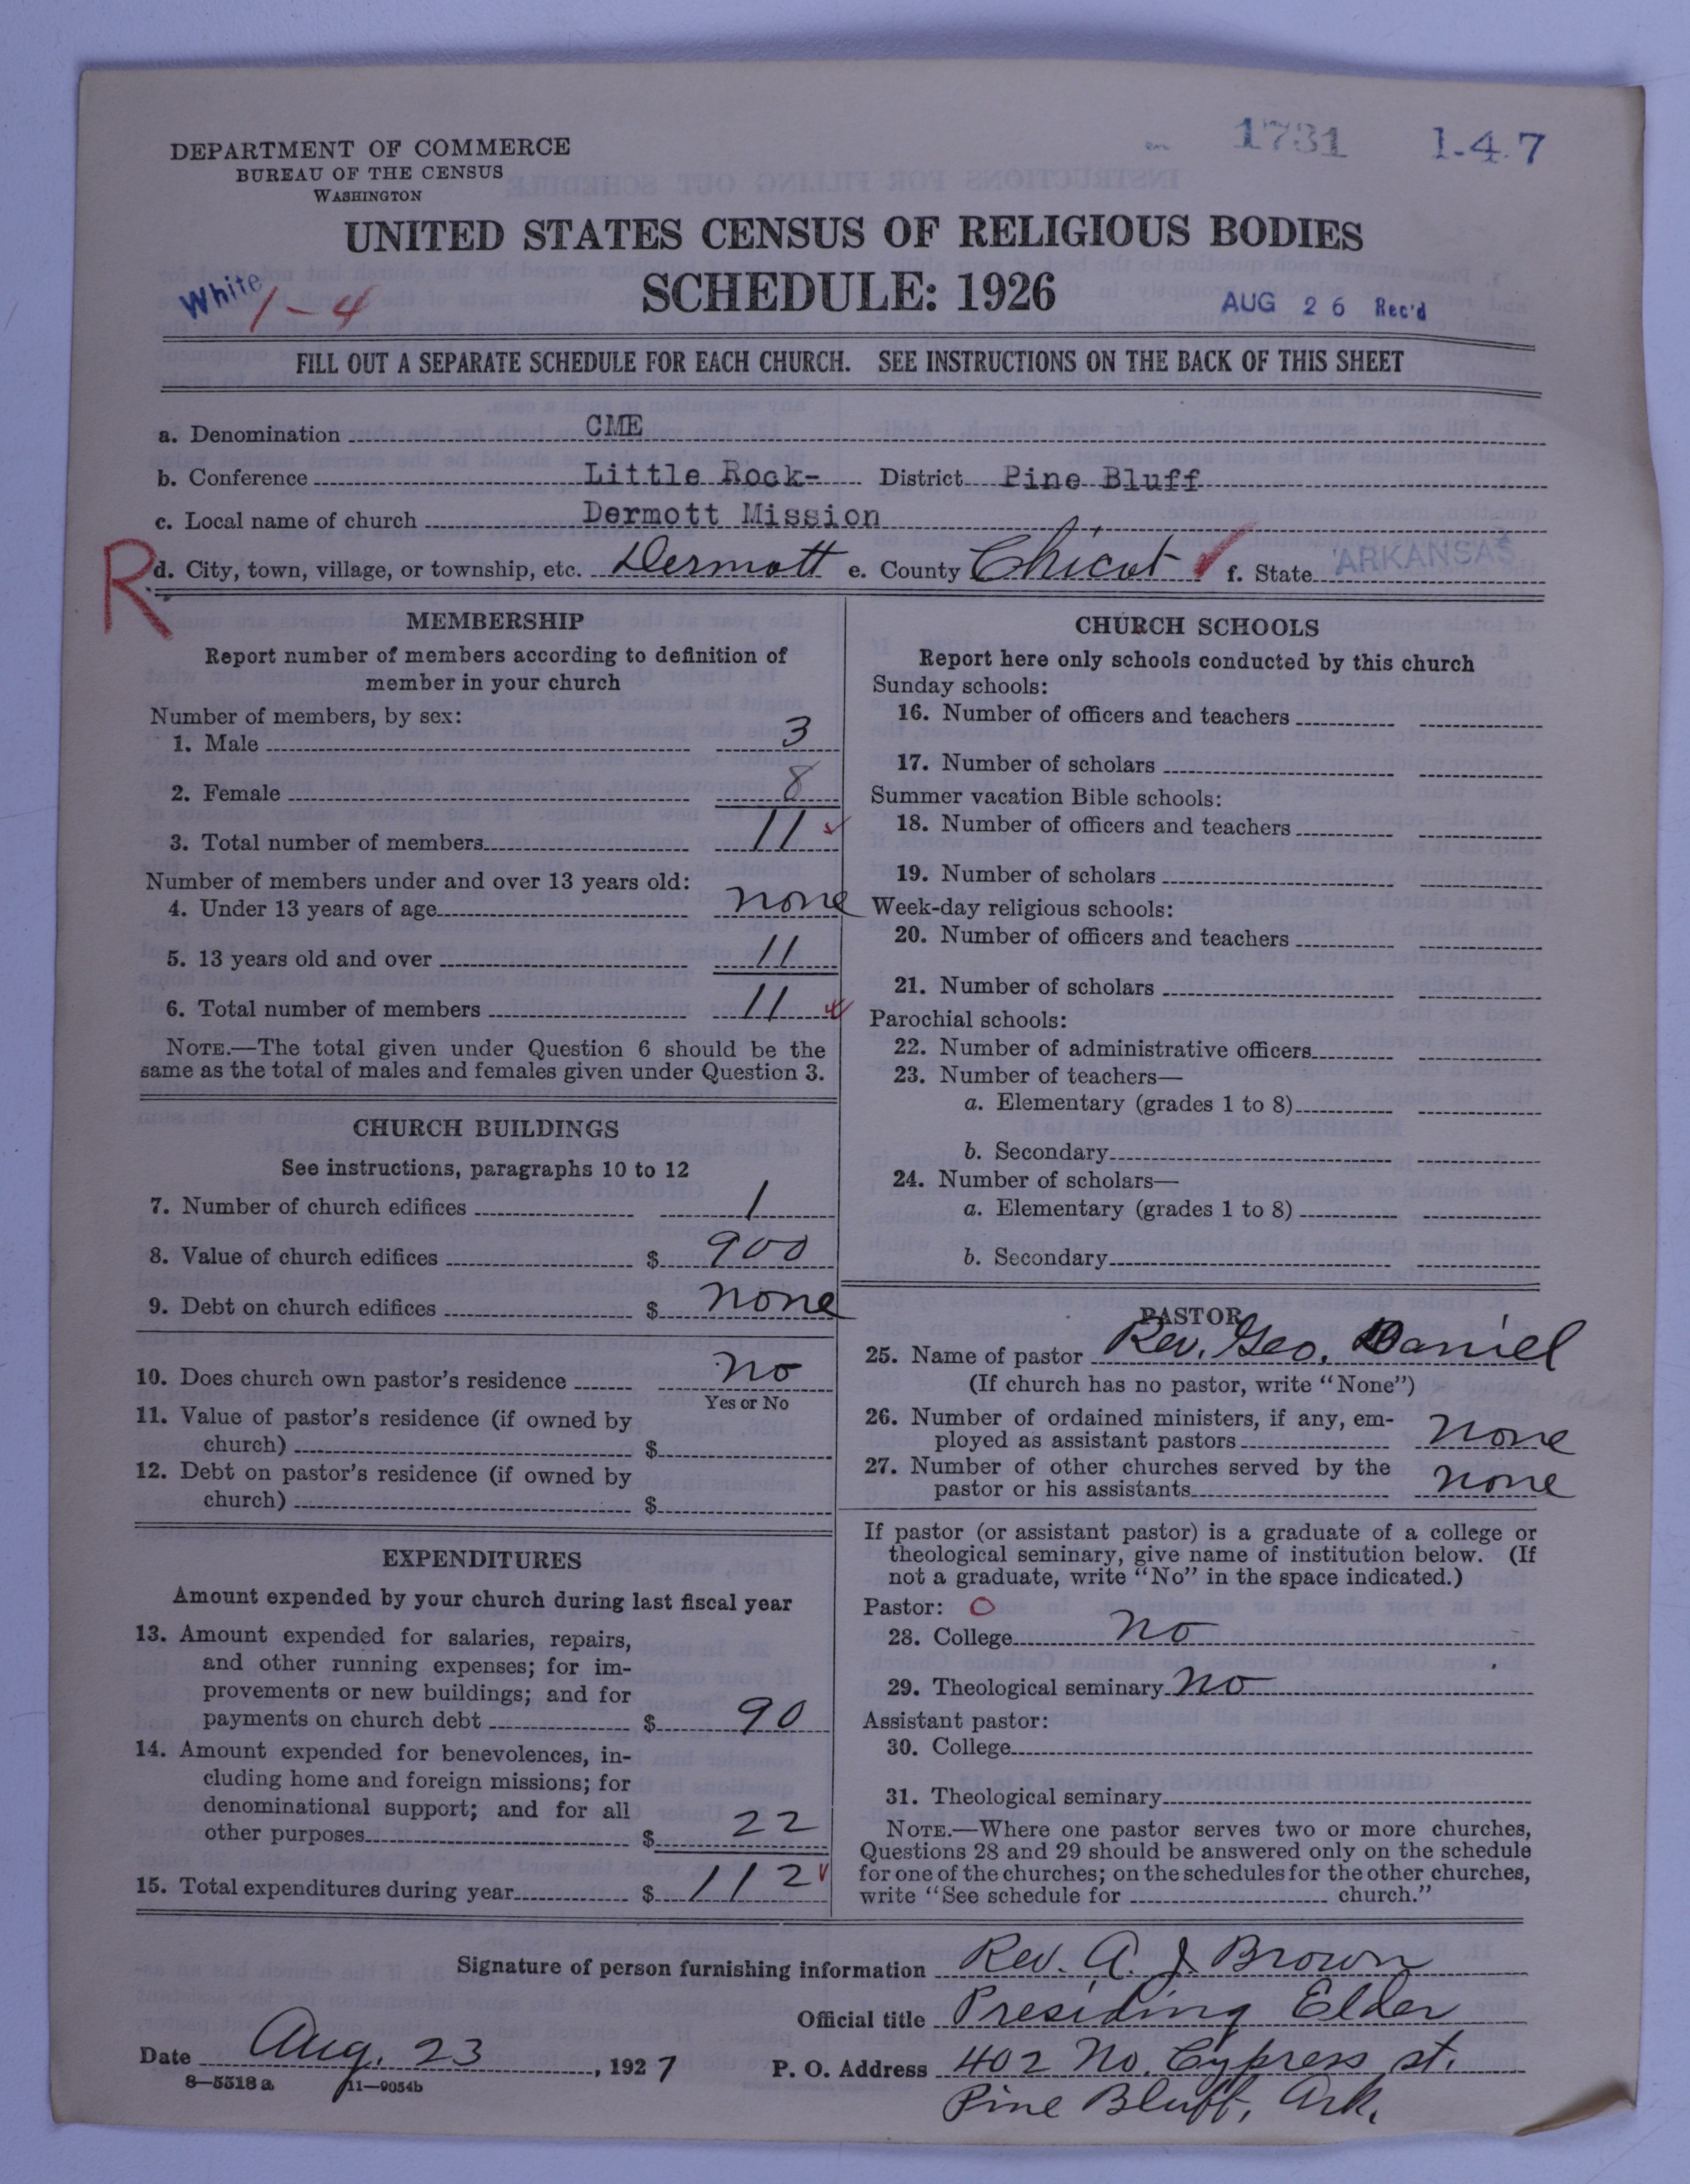 1731 1-4.7
DEPARTMENT OF COMMERCE
BUREAU OF THE CENSUS
WASHINGTON
UNITED STATES CENSUS OF RELIGIOUS BODIES
SCHEDULE: 1926
White 1-4
AUG 26 Rec'd
FILL OUT A SEPARATE SCHEDULE FOR EACH CHURCH. SEE INSTRUCTIONS ON THE BACK OF THIS SHEET
a. Denomination CME
b. Conference Little Rock- District Pine Bluff
c. Local name of church Dermott Mission
R
d. City, town, village, or township, etc. Dermott e. County Chicot f. State ARKANSAS
MEMBERSHIP
Report number of members according to definition of
member in your church
Number of members, by sex:
1. Male 3
2. Female 8
3. Total number of members 11
Number of members under and over 13 years old:
4. Under 13 years of age none
5. 13 years old and over 11
6. Total number of members 11
NOTE.—The total given under Question 6 should be the
same as the total of males and females given under Question 3.
CHURCH BUILDINGS
See instructions, paragraphs 10 to 12
7. Number of church edifices 1
8. Value of church edifices $ 900
9. Debt on church edifices $ none
10. Does church own pastor's residence no
Yes or No
11. Value of pastor's residence (if owned by
church) $
12. Debt on pastor's residence (if owned by
church) $
EXPENDITURES
Amount expended by your church during last fiscal year
13. Amount expended for salaries, repairs,
and other running expenses; for im-
provements or new buildings; and for
payments on church debt $ 90
14. Amount expended for benevolences, in-
cluding home and foreign missions; for
denominational support; and for all
other purposes $ 22
15. Total expenditures during year $ 112
CHURCH SCHOOLS
Report here only schools conducted by this church
Sunday schools:
16. Number of officers and teachers
17. Number of scholars
Summer vacation Bible schools:
18. Number of officers and teachers
19. Number of scholars
Week-day religious schools:
20. Number of officers and teachers
21. Number of scholars
Parochial schools:
22. Number of administrative officers
23. Number of teachers—
a. Elementary (grades 1 to 8)
b. Secondary
24. Number of scholars—
a. Elementary (grades 1 to 8)
b. Secondary
PASTOR
25. Name of pastor Rev. Geo. Daniel
(If church has no pastor, write "None")
26. Number of ordained ministers, if any, em-
ployed as assistant pastors none
27. Number of other churches served by the
pastor or his assistants none
If pastor (or assistant pastor) is a graduate of a college or
theological seminary, give name of institution below. (If
not a graduate, write "No" in the space indicated.)
Pastor: O
28. College no
29. Theological seminary no
Assistant pastor:
30. College
31. Theological seminary
NOTE.—Where one pastor serves two or more churches,
Questions 28 and 29 should be answered only on the schedule
for one of the churches; on the schedules for the other churches,
write "See schedule for church."
Signature of person furnishing information Rev. A. J. Brown
Official title Presiding Elder
Date Aug. 23, 1927 P. O. Address 402 No. Cypress st.
8—5518a 11—9054b
Pine Bluff, Ark.